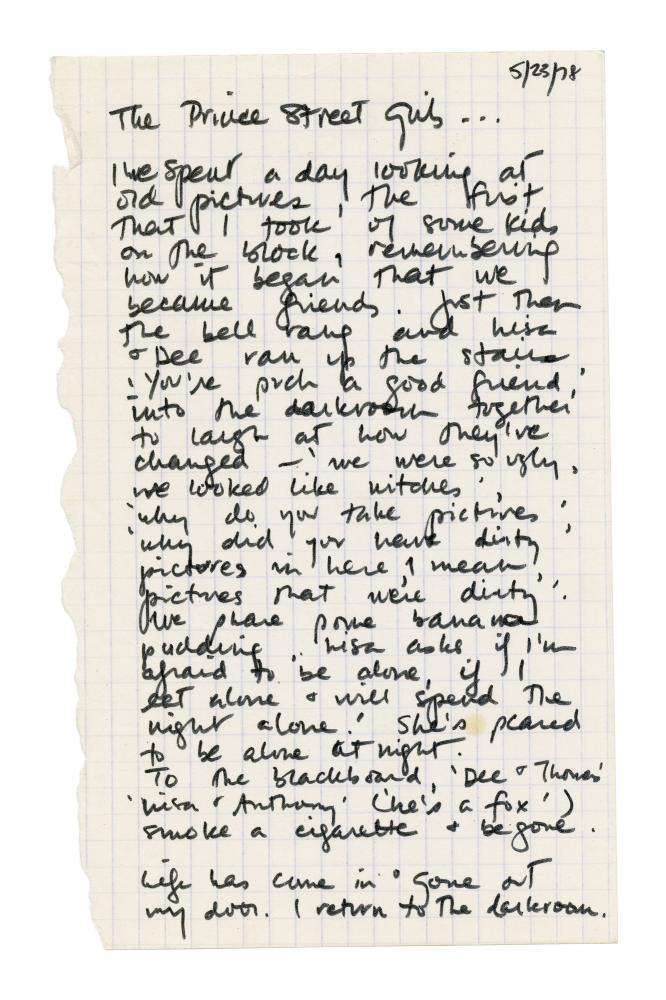 5/23/78
The Prince Street Girls ...
I've spent a day looking at
old pictures, the first
that I took of some kids
on the block, remembering
how it began that we
became friends. Just then
the bell rang and Lisa
& Dee ran up the stairs
'You're such a good friend,'
into the darkroom together
to laugh at how they've
changed – 'we were so ugly,
we looked like witches',
'why do you take pictures',
'why did you have dirty
pictures in here, I mean,
pictures that were dirty'.
We share some banana
pudding. Lisa asks if I'm
afraid to be alone, if I
eat alone & will spend the
night alone.' She's scared
to be alone at night.
To the blackboard, 'Dee & Thomas'
'Lisa & Anthony' ('he's a fox')
smoke a cigarette & be gone.
Life has come in & gone out
my door. I return to the darkroom.